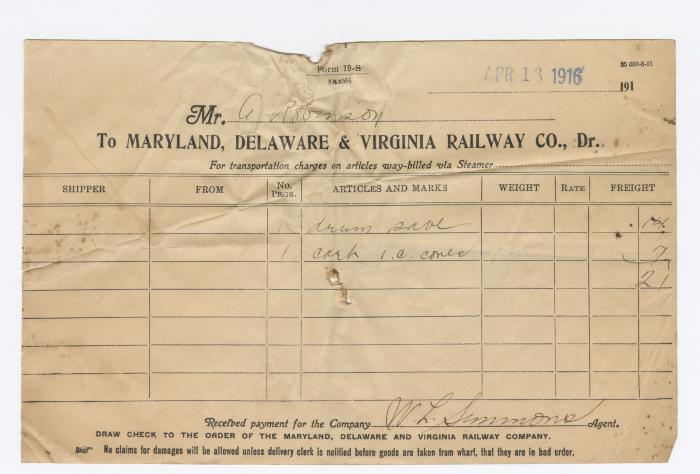 Form 19-S
8½x5½
35 000-6-15
APR 13 1916
191
Mr. A Robinson
To MARYLAND, DELAWARE & VIRGINIA RAILWAY CO., Dr.
For transportation charges on articles way-billed via Steamer
SHIPPER FROM No. PKGS. ARTICLES AND MARKS WEIGHT RATE FREIGHT
1 drum 14
1 i.c. cones 7
21
Received payment for the Company W L Simmons Agent.
DRAW CHECK TO THE ORDER OF THE MARYLAND, DELAWARE AND VIRGINIA RAILWAY COMPANY.
No claims for damages will be allowed unless delivery clerk is notified before goods are taken from wharf, that they are in bad order.